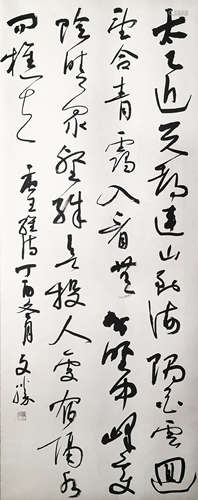 太乙近天都連山到海隅白雲迴
望合青靄入看無分野中峰變
陰晴眾壑殊欲投人處宿隔水
問樵夫 王維詩丁酉冬月文勝